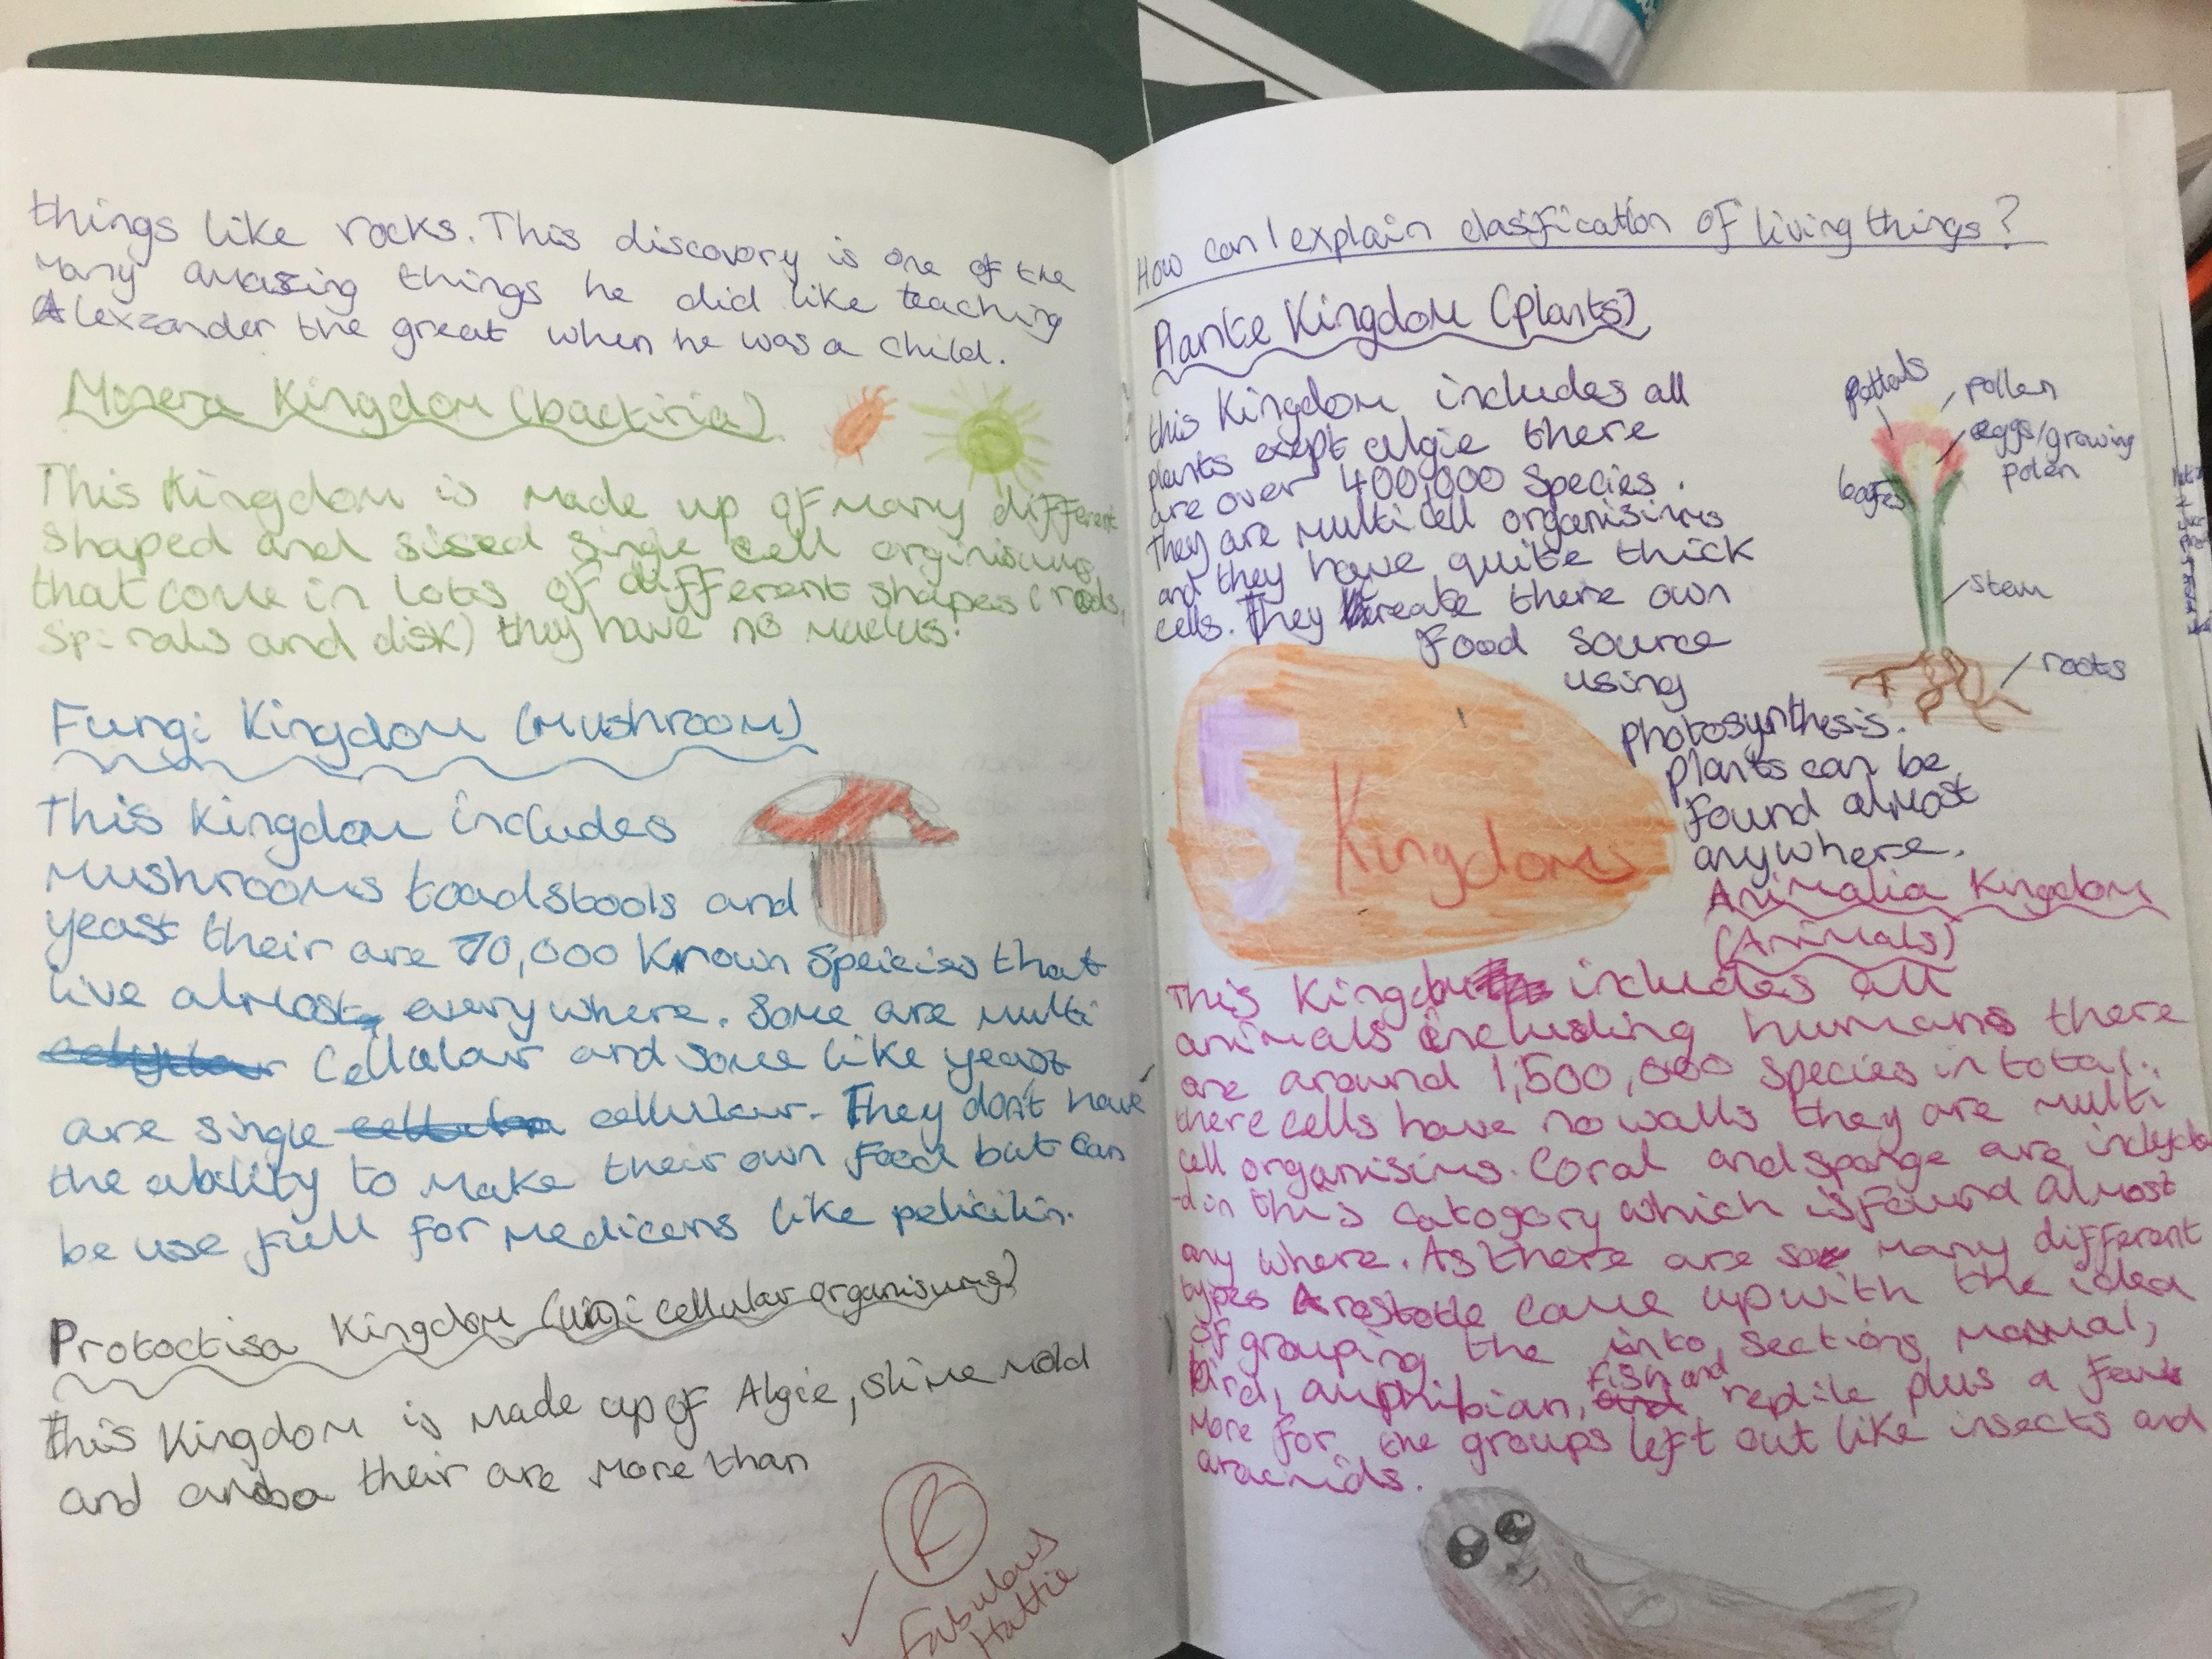 things like rocks. This discovory is one of the
many amazing things he did like teaching
Alexzander the great when he was a child.
Monera Kingdom (bactiria)
This Kingdom is made up of many different
shaped and sised single cell orginisums
that come in lots of different shapes (rods,
spirals and disk) they have no nuclus.
Fungi Kingdom (Mushroom)
This Kingdom includes
Mushrooms toadstools and
yeast their are 70,000 known speicies that
live almost everywhere. Some are multi
cellular and some like yeast
are single cellular. They don't have
the ability to make their own food but can
be use full for medicens like pelicilin.
Protoctisa Kingdom (uni cellular organisums)
this Kingdom is made up of Algie, slime mold
and their are more than
R
Fabulous
Hattie
How can I explain clasification of living things?
Plante Kingdom (Plants)
this Kingdom includes all
plants exept algie there
are over 400,000 species.
They are multi cell organisims
and they have quite thick
cells. They create there own
food source
using
photosynthesis.
plants can be
found almost
anywhere.
pettals
pollen
eggs/growing
polen
leafes
stem
roots
5 Kingdoms
Animalia Kingdom
(Animals)
This includes all
animals including humans there
are around 1,500,000 species in total.
there cells have no walls they are multi
cell organisims. Coral and sponge are include
-d in this catogory which is found almost
any where. As there are many different
types Arostotle came up with the idea
of grouping the into sections mammal,
bird, amphibian, fish and reptile plus a few
more for the groups left out like insects and
aracnids.